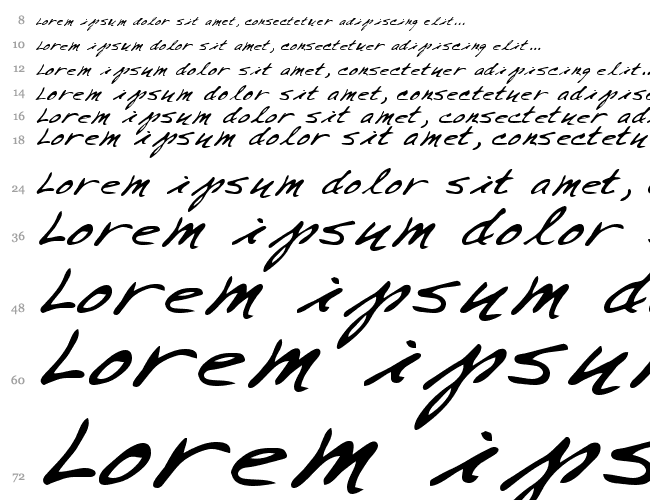 8 Lorem ipsum dolor sit amet, consectetuer adipiscing elit...
10 Lorem ipsum dolor sit amet, consectetuer adipiscing elit...
12 Lorem ipsum dolor sit amet, consectetuer adipiscing elit..
14 Lorem ipsum dolor sit amet, consectetuer adipisc
16 Lorem ipsum dolor sit amet, consectetuer adi
18 Lorem ipsum dolor sit amet, consectetu
24 Lorem ipsum dolor sit amet,
36 Lorem ipsum dolor
48 Lorem ipsum d
60 Lorem ipsu
72 Lorem ips